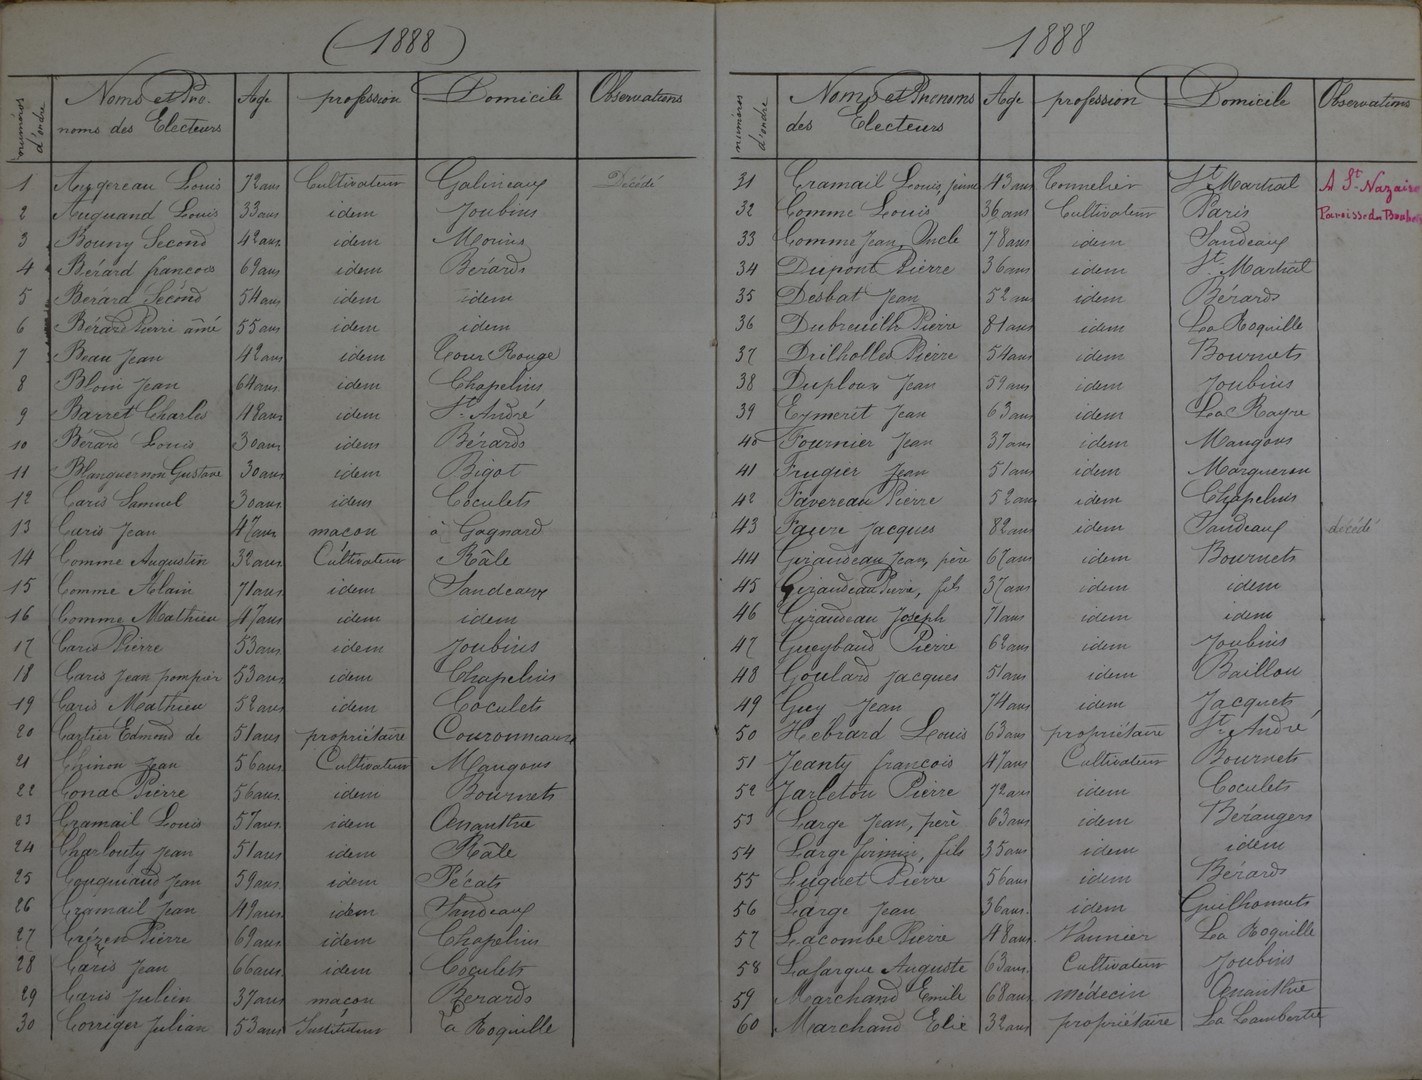 (1888)
numéros d'ordre
Noms et Pré-
noms des Electeurs
Age
profession
Domicile
Observations
1 Augereau Louis 72 ans Cultivateur Galineaux Décédé
2 Auguand Louis 33 ans idem Joubins
3 Bouny Second 42 ans idem Morins
4 Bérard francois 69 ans idem Berards
5 Berard Second 54 ans idem idem
6 Bérard Pierre aîné 55 ans idem idem
7 Beau Jean 42 ans idem Tour Rouge
8 Blouin Jean 64 ans idem Chapelins
9 Barret Charles 48 ans idem St André
10 Bérard Louis 30 ans idem Bérards
11 Blanquernon Gustave 30 ans idem Bigot
12 Caris Samuel 30 ans idem Coculets
13 Caris Jean 47 ans maçon à Gagnard
14 Comme Augustin 32 ans Cultivateur Râle
15 Comme Alain 71 ans idem Sandeaux
16 Comme Mathieu 47 ans idem idem
17 Caris Pierre 53 ans idem Joubins
18 Caris Jean pompier 53 ans idem Chapelins
19 Caris Mathieu 52 ans idem Coculets
20 Cartier Edmond de 51 ans propriétaire Couronneau
21 Chinon Jean 56 ans Cultivateur Maugons
22 Conac Pierre 56 ans idem Bournets
23 Cramail Louis 57 ans idem Ananthie
24 Charlouty Jean 51 ans idem Râle
25 Jean 59 ans idem Pécats
26 Cramail Jean 49 ans idem Sandeaux
27 Pierre 69 ans idem Chapelins
28 Caris Jean 66 ans idem Coculets
29 Caris Julien 37 ans maçon Berards
30 Corriger Julian 53 ans Instituteur La Roquille
1888
numéros d'ordre
Noms et Prenoms
des Electeurs
Age
profession
Domicile
Observations
31 Cramail Louis, jeune 43 ans Tonnelier St Martial A St Nazaire
32 Comme Louis 36 ans Cultivateur Paris Paroisse du
33 Comme Jean, Oncle 78 ans idem Sandeaux
34 Dupont Pierre 36 ans idem St Martial
35 Desbat Jean 52 ans idem Bérards
36 Dubreuilh Pierre 81 ans idem La Roquille
37 Drilholle Pierre 54 ans idem Bournets
38 Duploux Jean 59 ans idem Joubins
39 Eymeret Jean 63 ans idem La Rayre
40 Fournier Jean 37 ans idem Maugons
41 Frugier Jean 51 ans idem Margueron
42 Favereau Pierre 52 ans idem Chapelins
43 Faure Jacques 82 ans idem Sandeaux décédé
44 Giraudeau Jean, père 67 ans idem Bournets
45 Giraudeau Pierre, fils 37 ans idem idem
46 Giraudeau Joseph 71 ans idem idem
47 Gueybaud Pierre 62 ans idem Joubins
48 Goulard Jacques 51 ans idem Baillou
49 Guy Jean 74 ans idem Jacquets
50 Hebrard Louis 63 ans propriétaire St André
51 Jeanty francois 47 ans Cultivateur Bournets
52 Jarleton Pierre 72 ans idem Coculets
53 Large Jean, père 63 ans idem Bérangers
54 Large firmin, fils 35 ans idem idem
55 Luguet Pierre 56 ans idem Bérards
56 Large Jean 36 ans idem Guilhonnets
57 Lacombe Pierre 48 ans Vannier La Roquille
58 Lafargue Auguste 63 ans Cultivateur Joubins
59 Marchand Emile 68 ans médecin Ananthie
60 Marchand Elie 32 ans propriétaire La Lambertie